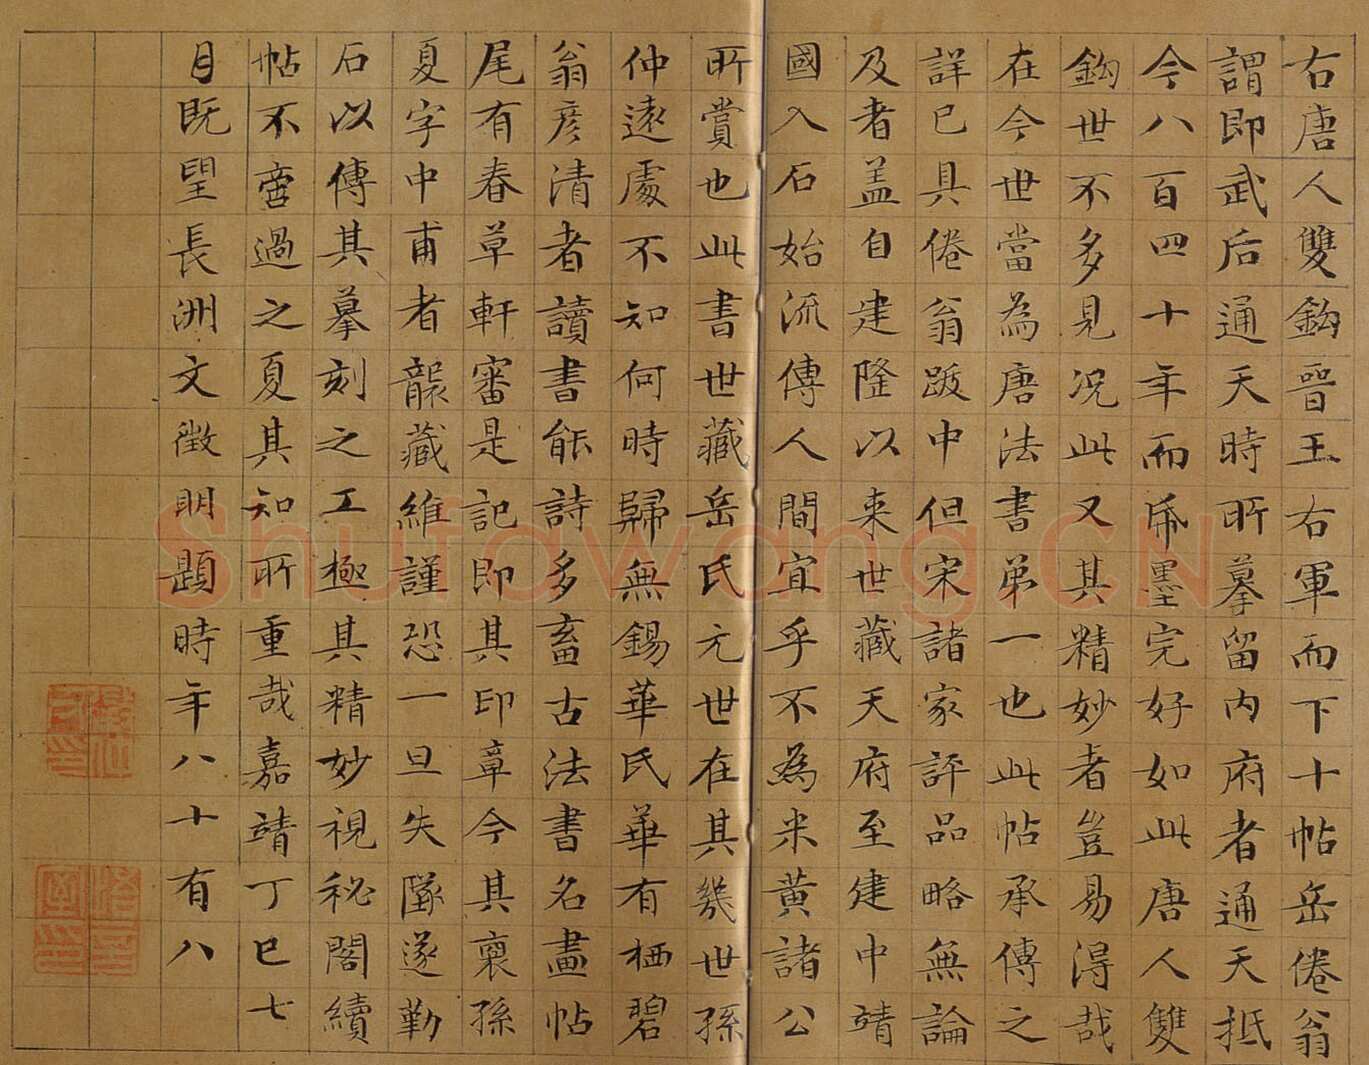 右唐人雙鈎晉王右軍而下十帖岳倦翁
謂即武后通天時所摹留內府者通天抵
今八百四十年而帋墨完好如此唐人雙
鈎世不多見况此又其精妙者豈易得哉
在今世當為唐法書第一也此帖承傳之
詳已具倦翁跋中但宋諸家評品略無論
及者盖自建隆以来世藏天府至建中靖
國入石始流傳人間宜乎不為米黄諸公
所賞也此書世藏岳氏元世在其幾世孫
仲遠處不知何時歸無錫華氏華有栖碧
翁彦清者讀書能詩多畜古法書名畫帖
尾有春草軒審是記即其印章今其裔孫
夏字中甫者襲藏維謹恐一旦失墜遂勒
石以傳其摹刻之工極其精妙視秘閣續
帖不啻過之夏其知所重哉嘉靖丁巳七
月既望長洲文徵明題時年八十有八
Shufawang.CN